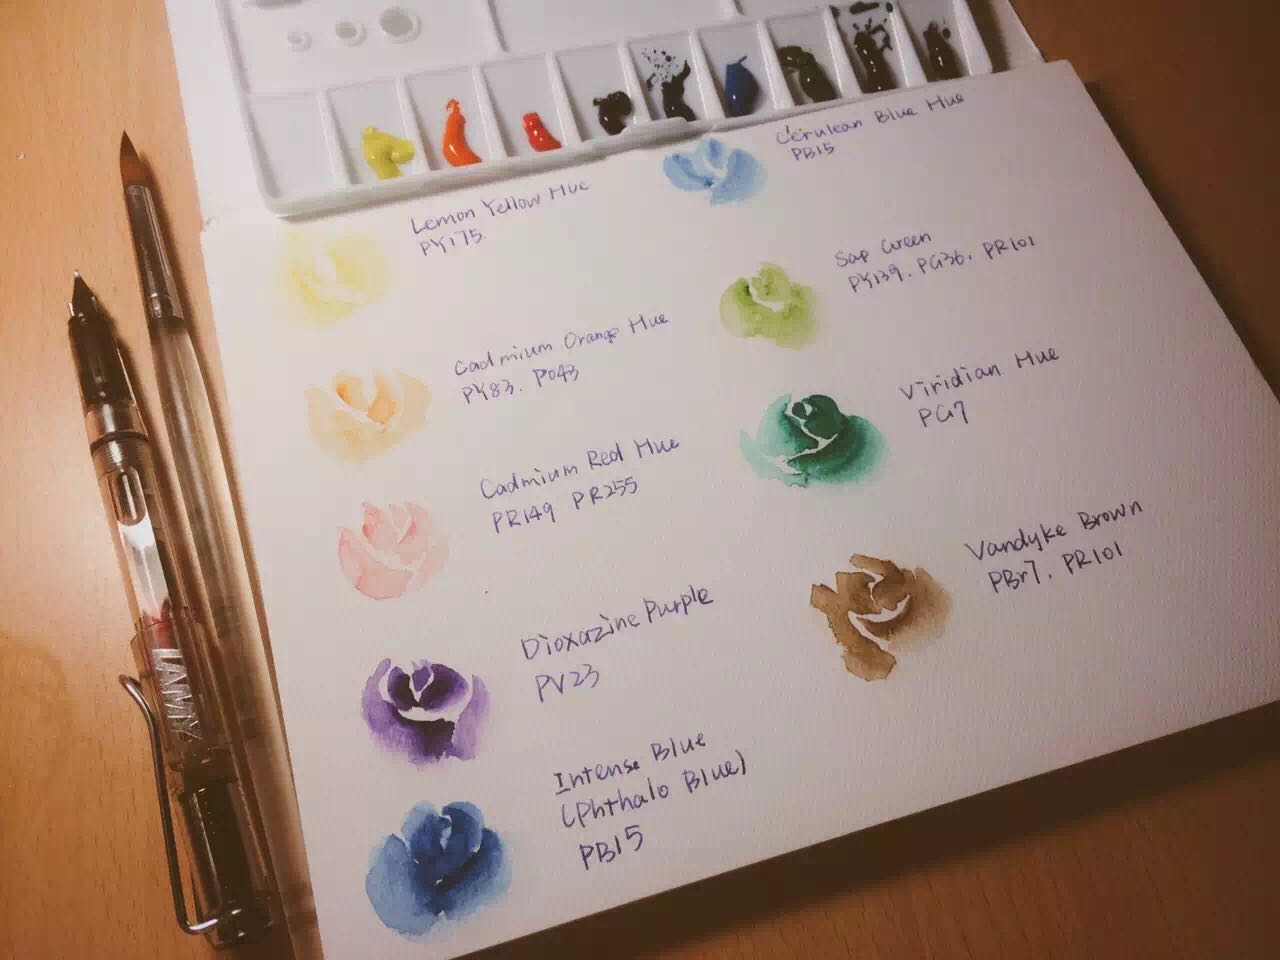 Lemon Yellow Hue
PY175.
Cadmium Orange Hue
PY83. PO43
Cadmium Red Hue
PR149 PR255
Dioxazine Purple
PV23
Intense Blue
(Phthalo Blue)
PB15
Cerulean Blue Hue
PB15
Sap Green
PY139. PG36. PR101
Viridian Hue
PG7
Vandyke Brown
PBr7. PR101
LAMY